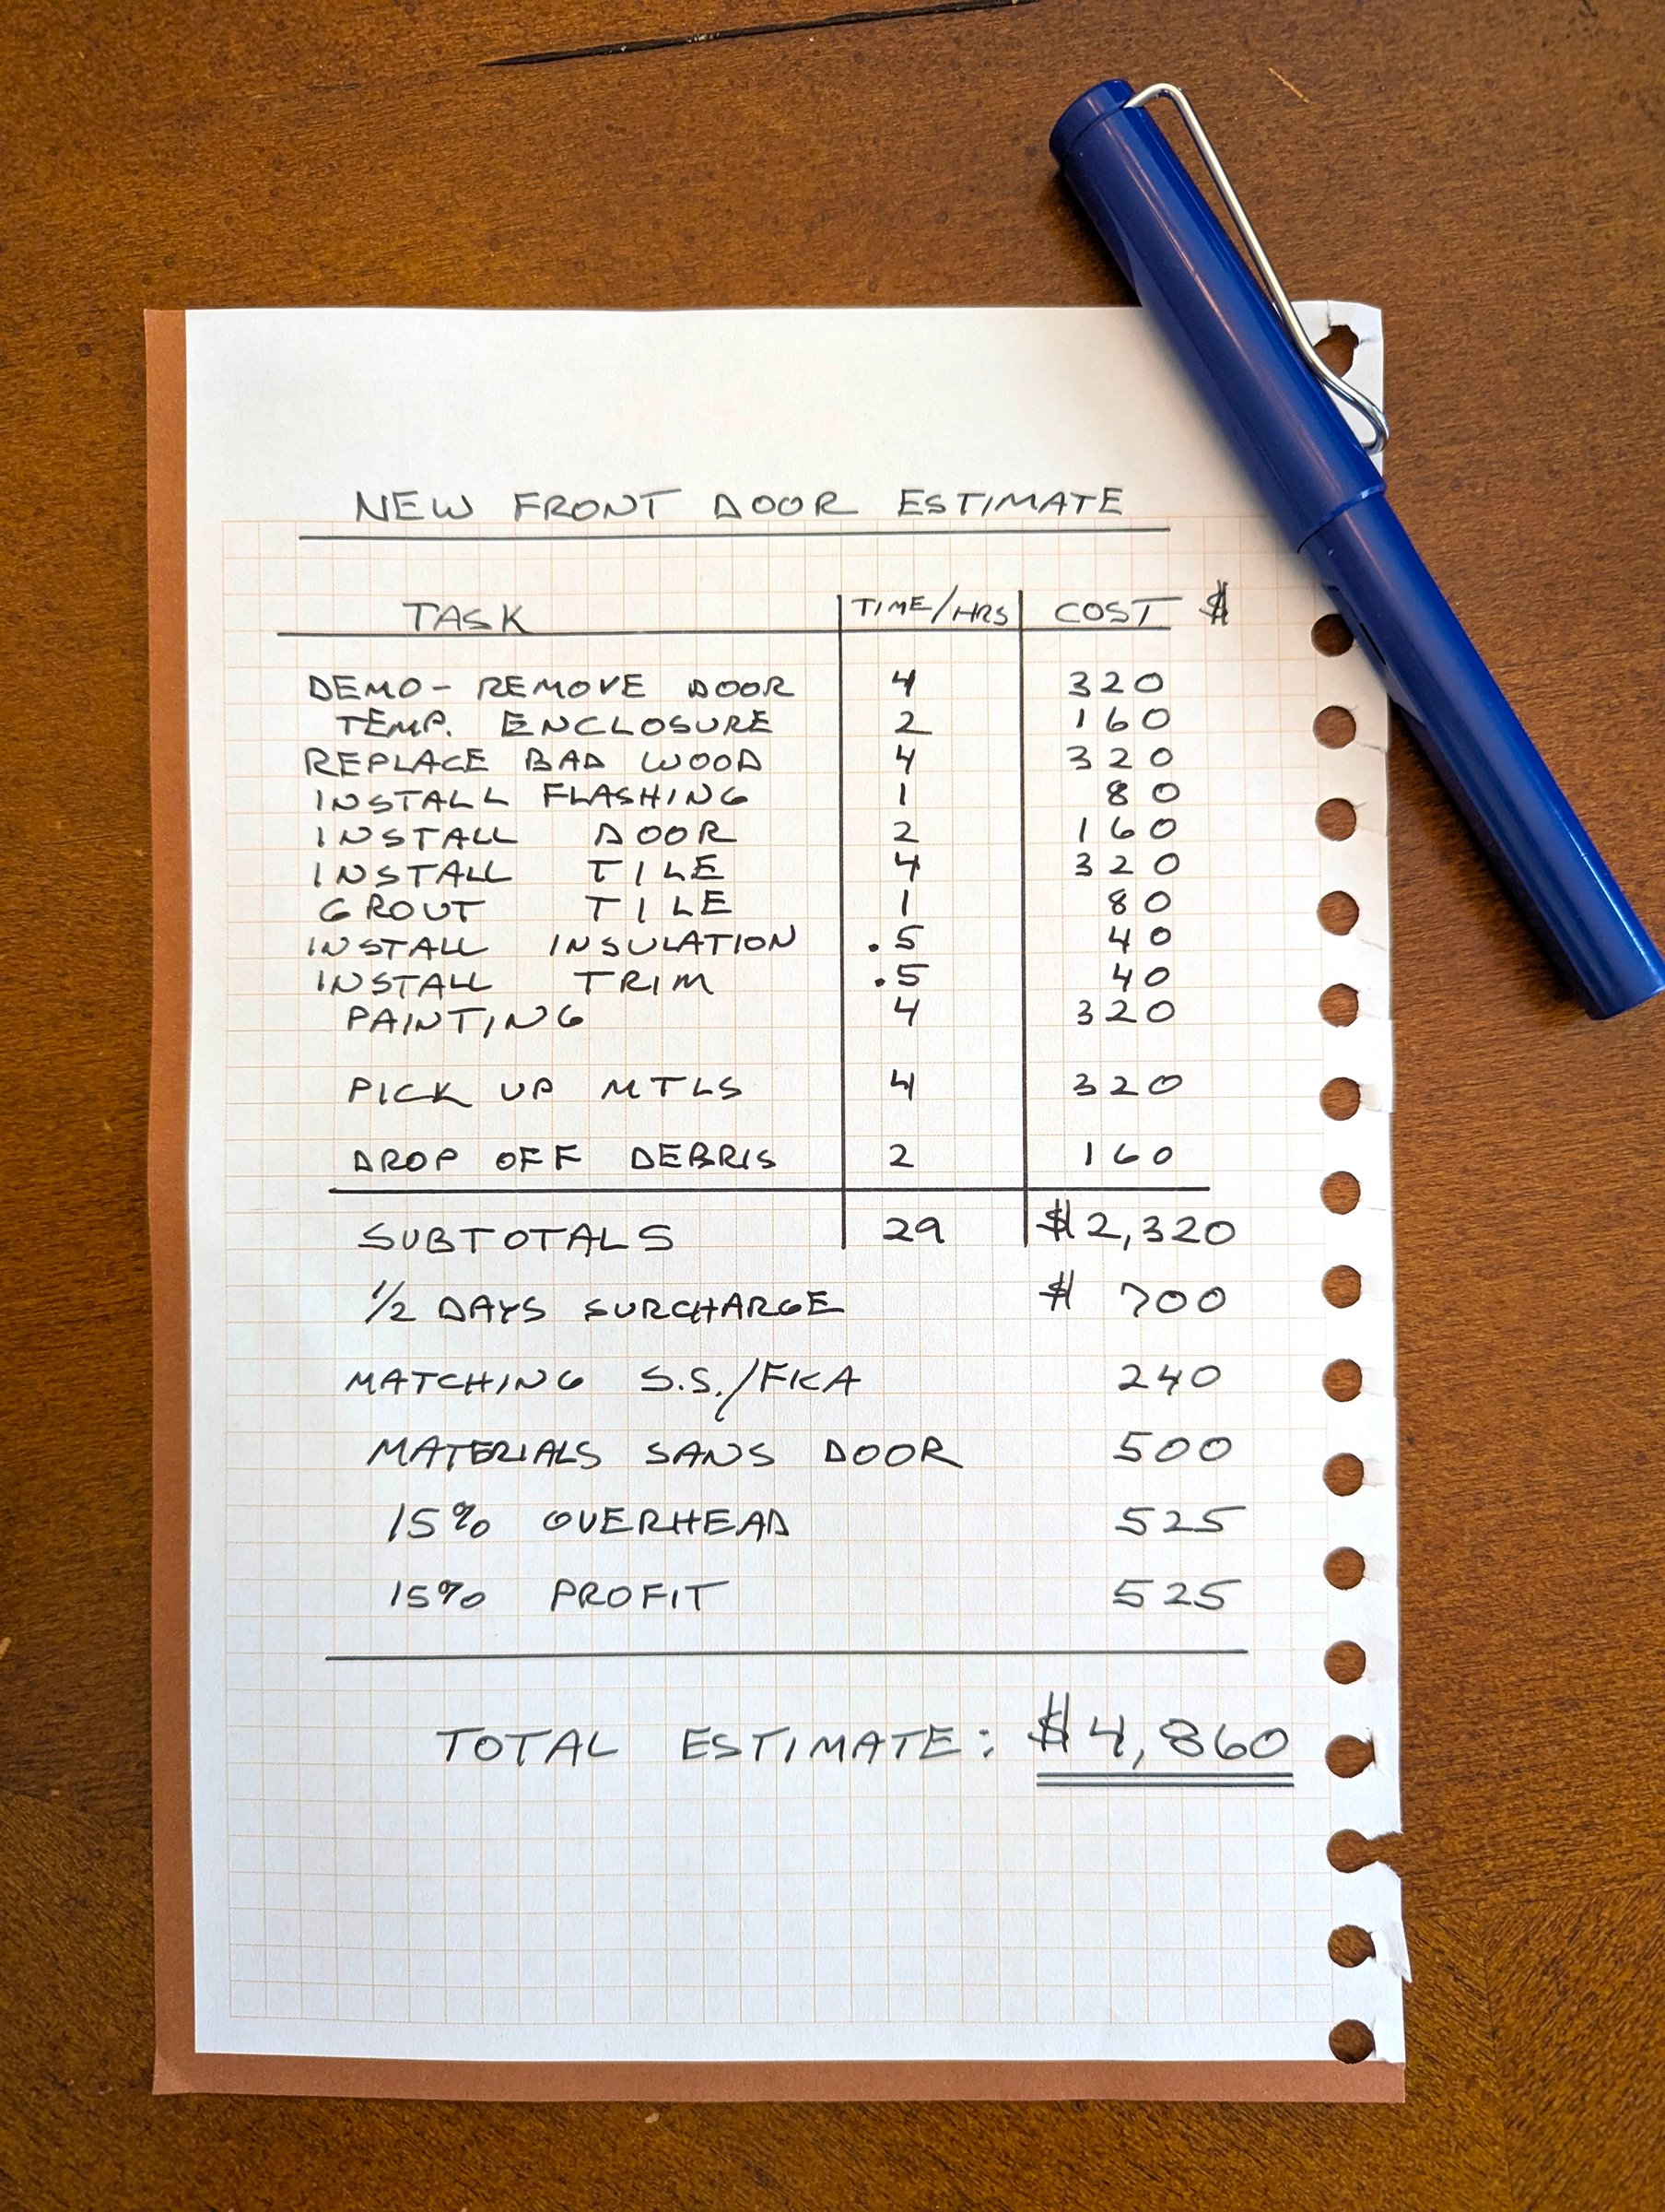 NEW FRONT DOOR ESTIMATE
TASK TIME/HRS COST $
DEMO - REMOVE DOOR 4 320
TEMP. ENCLOSURE 2 160
REPLACE BAD WOOD 4 320
INSTALL FLASHING 1 80
INSTALL DOOR 2 160
INSTALL TILE 4 320
GROUT TILE 1 80
INSTALL INSULATION .5 40
INSTALL TRIM .5 40
PAINTING 4 320
PICK UP MTLS 4 320
DROP OFF DEBRIS 2 160
SUBTOTALS 29 $2,320
1/2 DAYS SURCHARGE $ 700
MATCHING S.S./FICA 240
MATERIALS SANS DOOR 500
15% OVERHEAD 525
15% PROFIT 525
TOTAL ESTIMATE: $4,860